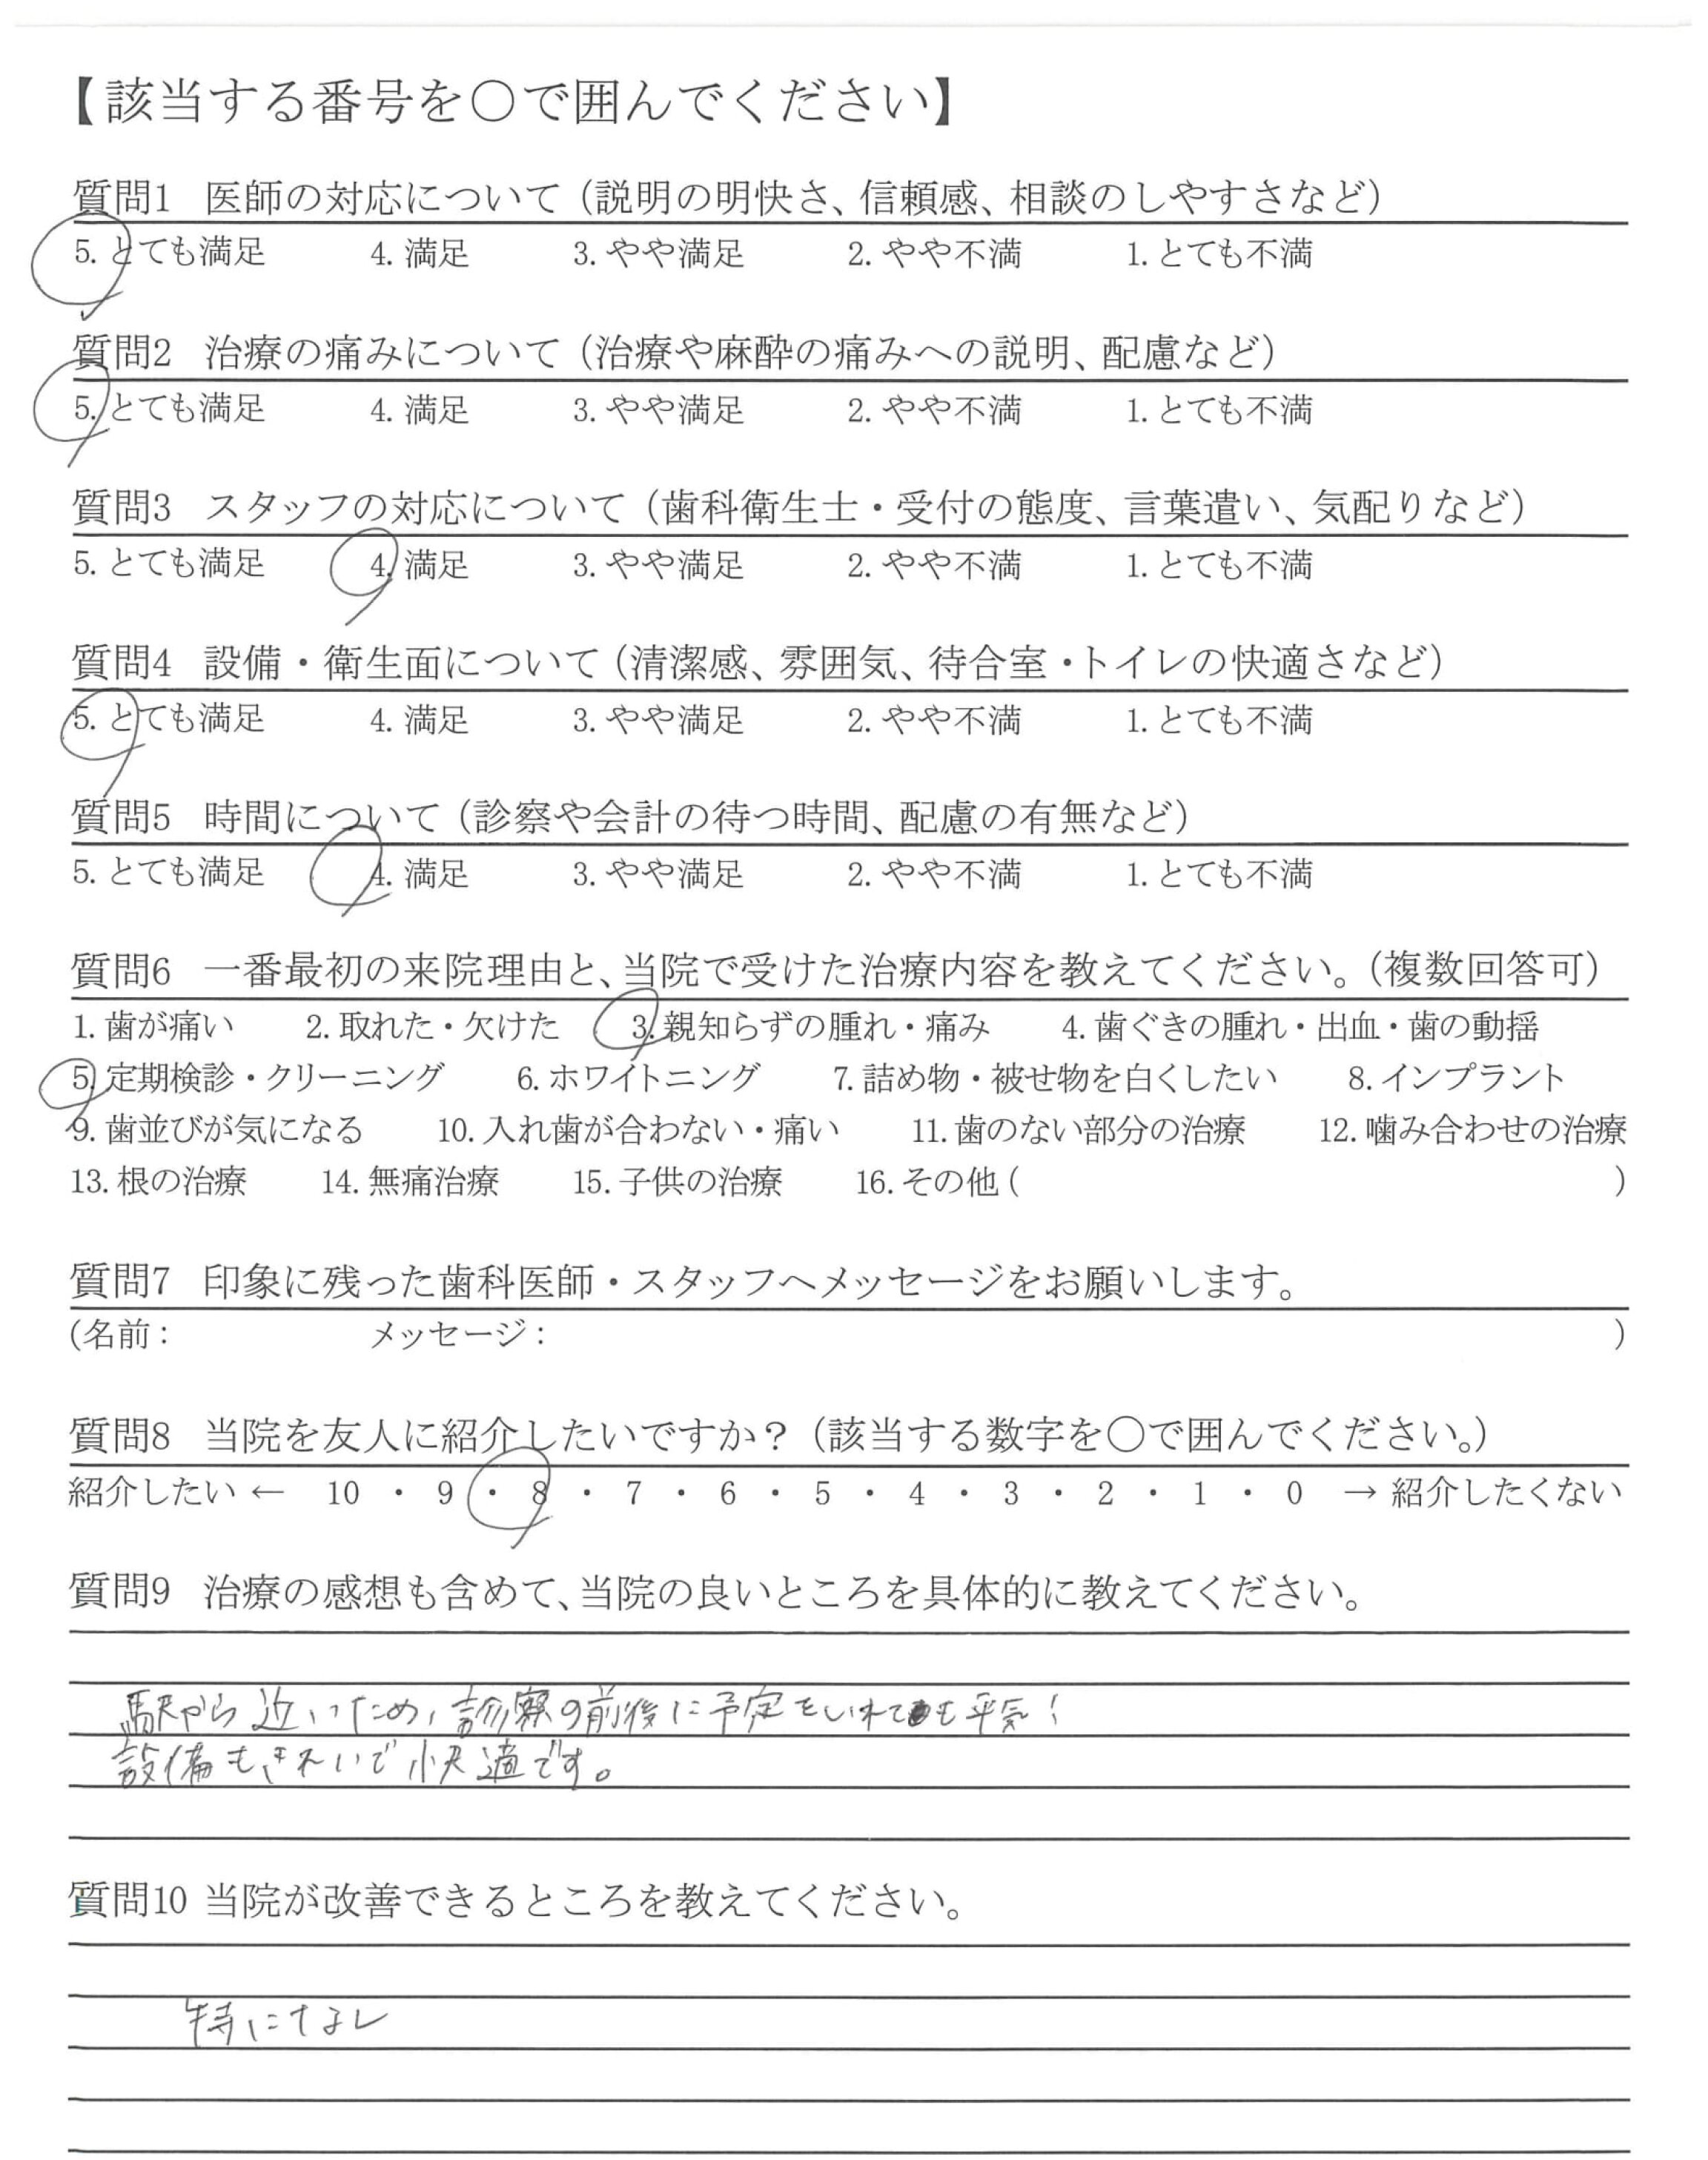 【該当する番号を○で囲んでください】
質問1 医師の対応について（説明の明快さ、信頼感、相談のしやすさなど）
5. とても満足 4. 満足 3. やや満足 2. やや不満 1. とても不満
質問2 治療の痛みについて（治療や麻酔の痛みへの説明、配慮など）
5. とても満足 4. 満足 3. やや満足 2. やや不満 1. とても不満
質問3 スタッフの対応について（歯科衛生士・受付の態度、言葉遣い、気配りなど）
5. とても満足 4. 満足 3. やや満足 2. やや不満 1. とても不満
質問4 設備・衛生面について（清潔感、雰囲気、待合室・トイレの快適さなど）
5. とても満足 4. 満足 3. やや満足 2. やや不満 1. とても不満
質問5 時間について（診察や会計の待つ時間、配慮の有無など）
5. とても満足 4. 満足 3. やや満足 2. やや不満 1. とても不満
質問6 一番最初の来院理由と、当院で受けた治療内容を教えてください。（複数回答可）
1. 歯が痛い 2. 取れた・欠けた 3. 親知らずの腫れ・痛み 4. 歯ぐきの腫れ・出血・歯の動揺
5. 定期検診・クリーニング 6. ホワイトニング 7. 詰め物・被せ物を白くしたい 8. インプラント
9. 歯並びが気になる 10. 入れ歯が合わない・痛い 11. 歯のない部分の治療 12. 噛み合わせの治療
13. 根の治療 14. 無痛治療 15. 子供の治療 16. その他（ ）
質問7 印象に残った歯科医師・スタッフへメッセージをお願いします。
（名前： メッセージ： ）
質問8 当院を友人に紹介したいですか？（該当する数字を○で囲んでください。）
紹介したい ← 10 ・ 9 ・ 8 ・ 7 ・ 6 ・ 5 ・ 4 ・ 3 ・ 2 ・ 1 ・ 0 → 紹介したくない
質問9 治療の感想も含めて、当院の良いところを具体的に教えてください。
駅から近いため、診察の前後に予定をいれても平気！
設備もきれいで快適です。
質問10 当院が改善できるところを教えてください。
特になし